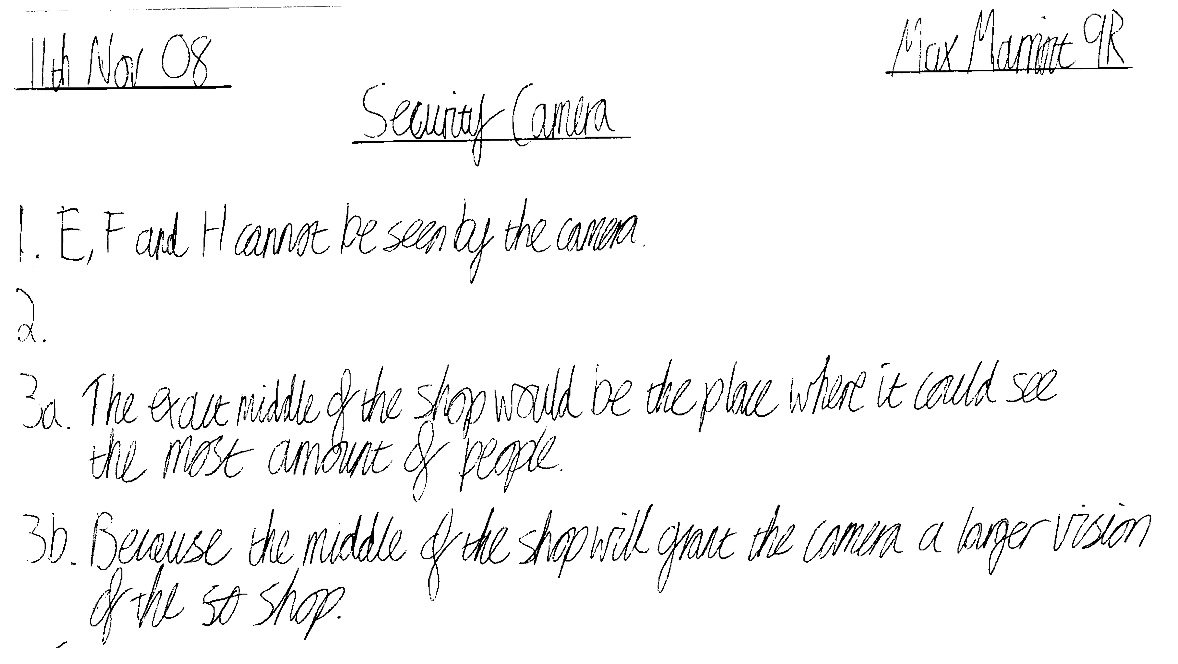 11th Nov 08
Max 9R
Security Camera
1. E, F and H cannot be seen by the camera.
2.
3a. The exact middle of the shop would be the place where it could see
the most amount of people.
3b. Because the middle of the shop will grant the camera a larger vision
of the shop.